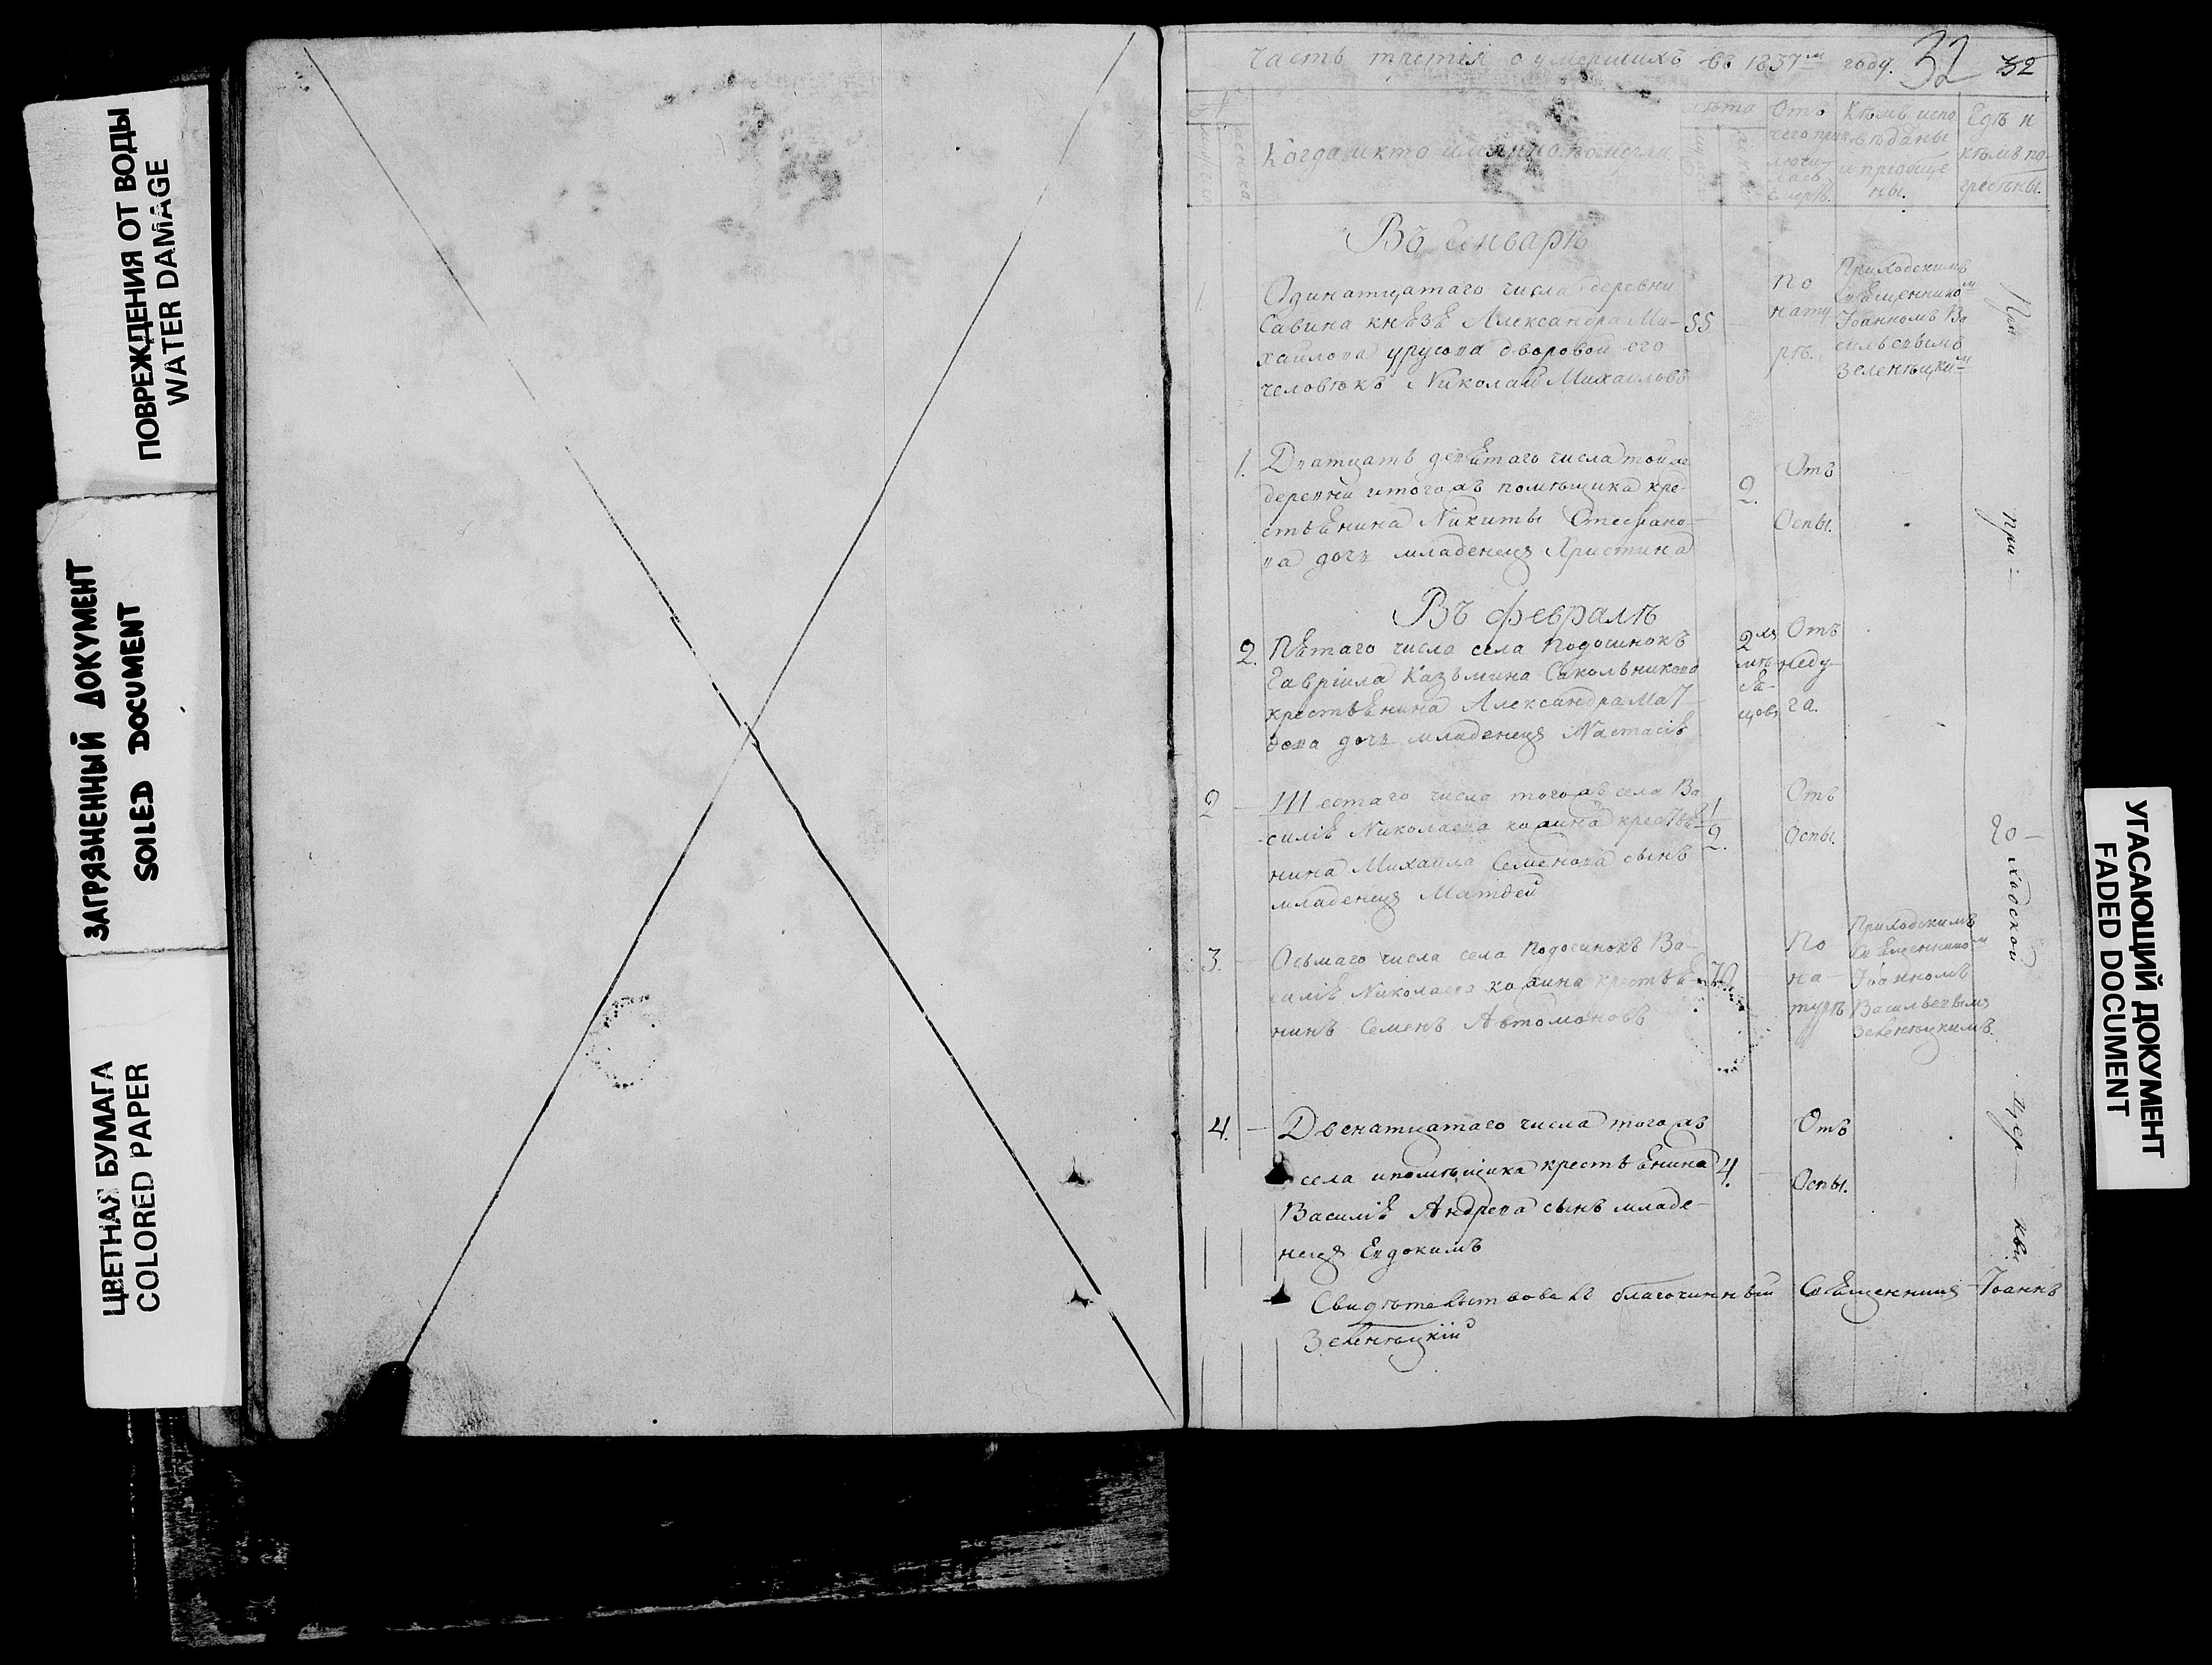 ПОВРЕЖДЕНИЯ ОТ ВОДЫ
WATER DAMAGE
ЗАГРЯЗНЕННЫЙ ДОКУМЕНТ
SOILED DOCUMENT
ЦВЕТНАЯ БУМАГА
COLORED PAPER
Часть третія о умершихъ въ 1837м году. 32 32
Когда и кто имянно померли
лѣта
Отъ
чего при
лючи
лась
смерть.
Кѣмъ испо
вѣданы
и приобще
ны.
Гдѣ и
кѣмъ по-
гребены.
Въ Генварѣ
1
Одинатцатаго числа деревни
Савина князя Александра Ми-
хайлова Урусова дворовой его
человѣкъ Николай Михаиловъ
55
По
нату
рѣ.
Приходскимъ
священникомъ
Іоанномъ Ва
сильевымъ
Зеленѣцкимъ
При
1.
Дватцать девятаго числа той ж
деревни и того жъ помѣщика кре-
стьянина Никиты Стефано-
ва дочь младенецъ Христина
2.
Отъ
Оспы.
При
Въ Февралѣ
2.
Пятаго числа села Подосинокъ
Гавріила Казьмина Сакольникова
крестьянина Александра Мат
ѳева дочь младенецъ Настасія
2хъ
мѣ-
ся-
цовъ
Отъ
неду-
га.
2
Шестаго числа того жъ села Ва
силія Николаева крестья-
нина Михаила Семенова сынъ
младенецъ Матѳей
1/2.
Отъ
Оспы.
3.
Осьмаго числа села Подосинокъ Ва-
силія Николаева крестья-
нинъ Семенъ Автомоновъ
70
По
на-
турѣ
Приходскимъ
священникомъ
Іоанномъ
Васильевымъ
Зеленѣцкимъ.
ходской
4.
Двенатцатаго числа того жъ
села и помѣщика крестьянина
Василія Андреева сынъ младе-
нецъ Евдокимъ
4.
Отъ
Оспы.
Цер-
кви
Свидѣтельствовалъ благочинный Священникъ Іоаннъ
Зеленѣцкій
УГАСАЮЩИЙ ДОКУМЕНТ
FADED DOCUMENT